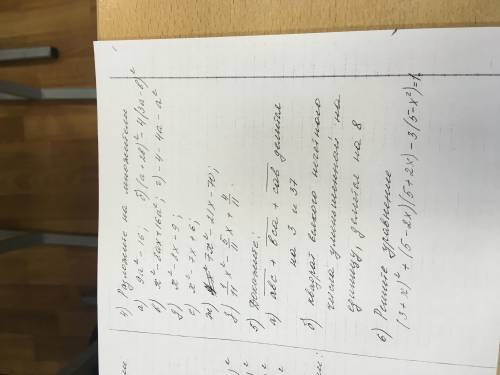 4) Разложите на множители
а) 9a² - 16; б) (a + 2b)² - 4(3a - b)²
в) x² - 8ax + 16a²; г) - 4 - 4a - a²
д) x² - 8x - 9;
е) x² - 7x + 6;
ж) 7x² - 21x - 70;
з) 1/11 x² - 5/11 x + 4/11.
5) Докажите:
а) abc + bca + cab делится
на 3 и 37
б) квадрат всякого нечётного
числа уменьшенный на
единицу, делится на 8
6) Решите уравнение
(3+x)² + (5-2x)(5+2x) - 3(5-x²) = 1.